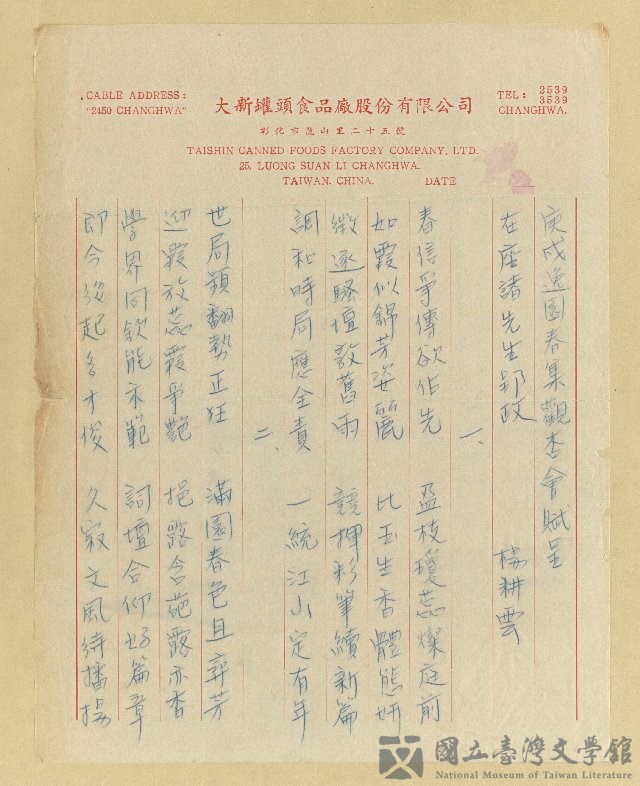 CABLE ADDRESS:
"2450 CHANGHWA"
大新罐頭食品廠股份有限公司
彰化市龍山里二十五號
TAISHIN CANNED FOODS FACTORY COMPANY, LTD.
25, LUONG SUAN LI CHANGHWA.
TAIWAN, CHINA.
DATE
TEL: 2539
3539
CHANGHWA.
庚戌逸園春集觀杏會賦呈
在座諸先生郢政 楊耕雲
一、
春信爭傳欲佔先 盈枝瓊蕊燦庭前
如霞似錦芳姿麗 比玉生香體態妍
徵逐騷壇敦舊雨 競揮彩筆續新篇
調和時局應全責 一統江山定有年
二、
世局頻翻勢正狂 滿園春色且弄芳
迎霞放蕊霞爭艷 挹露含葩露亦香
學界同欽能示範 詞壇合仰好篇章
即今後起多才俊 久寂文風待播揚
國立臺灣文學館
National Museum of Taiwan Literature